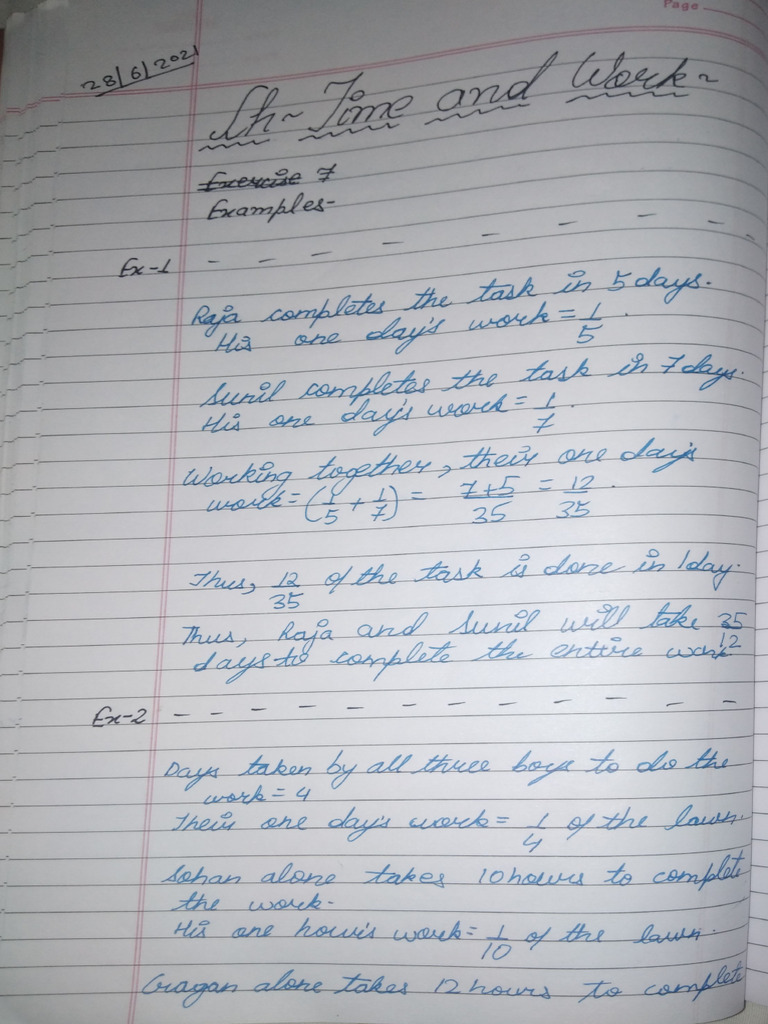 Page
28/6/2021
Ch~ Time and Work~
Exercise 7
Examples-
Ex-1 - - - - - - - -
Raja completes the task in 5 days.
His one day's work = 1/5.
Sunil completes the task in 7 days.
His one day's work = 1/7.
Working together, their one day's
work = (1/5 + 1/7) = 7+5/35 = 12/35.
Thus, 12/35 of the task is done in 1 day.
Thus, Raja and Sunil will take 35/12
days to complete the entire work
Ex-2 - - - - - - - - - - - -
Days taken by all three boys to do the
work = 4
Their one day's work = 1/4 of the lawn.
Sohan alone takes 10 hours to complete
the work.
His one hour's work = 1/10 of the lawn.
Gagan alone takes 12 hours to complete